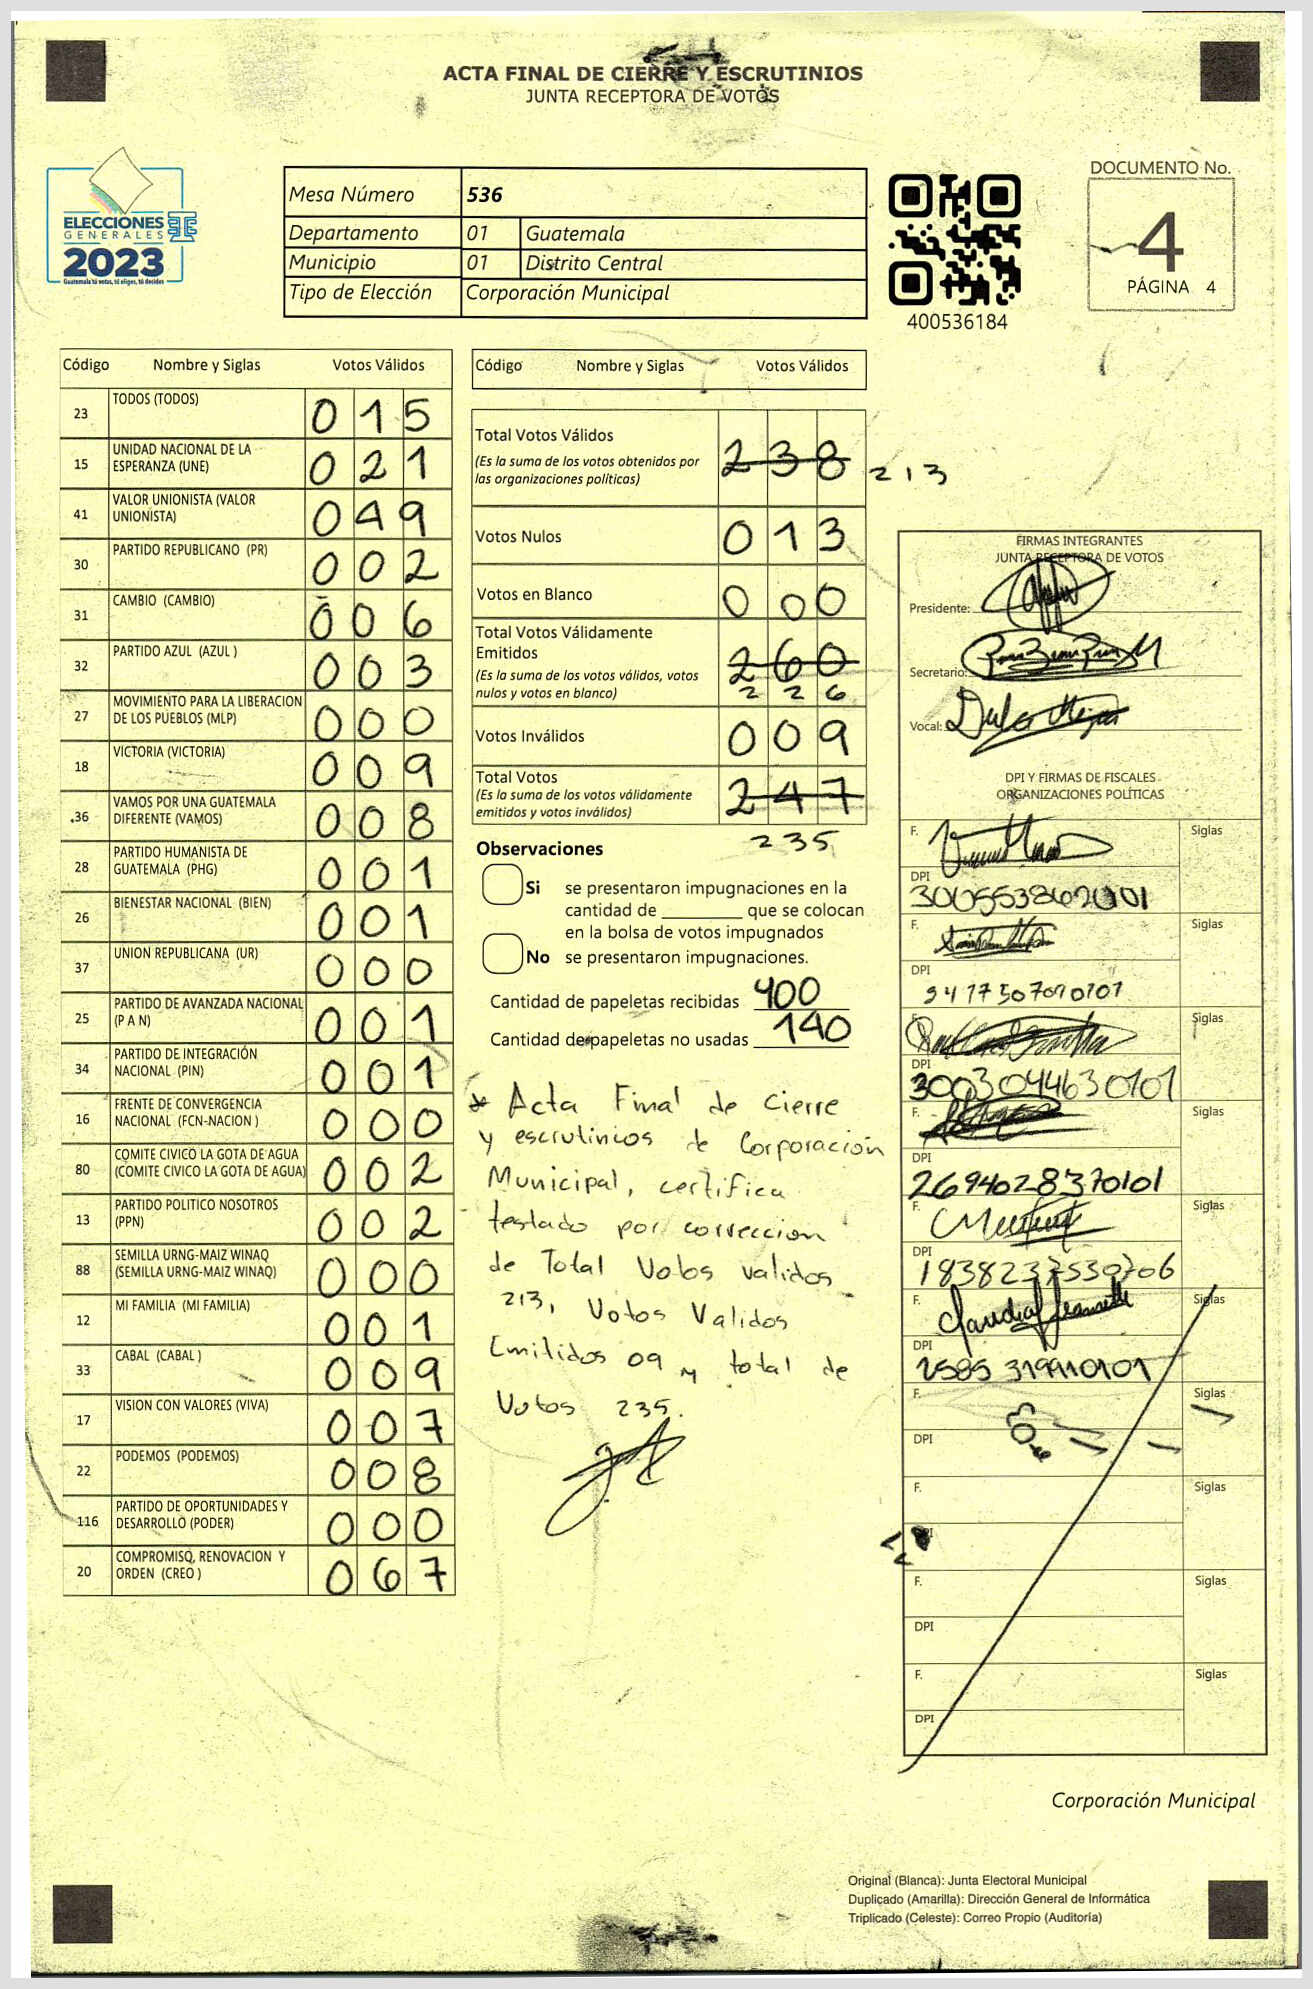 ACTA FINAL DE CIERRE Y ESCRUTINIOS
JUNTA RECEPTORA DE VOTOS
ELECCIONES
GENERALES
2023
Guatemala tú votas, tú eliges, tú decides
Mesa Número 536
Departamento 01 Guatemala
Municipio 01 Distrito Central
Tipo de Elección Corporación Municipal
400536184
DOCUMENTO No.
4
PÁGINA 4
Código Nombre y Siglas Votos Válidos
23 TODOS (TODOS) 015
15 UNIDAD NACIONAL DE LA
ESPERANZA (UNE) 021
41 VALOR UNIONISTA (VALOR
UNIONISTA) 049
30 PARTIDO REPUBLICANO (PR) 002
31 CAMBIO (CAMBIO) 006
32 PARTIDO AZUL (AZUL ) 003
27 MOVIMIENTO PARA LA LIBERACION
DE LOS PUEBLOS (MLP) 000
18 VICTORIA (VICTORIA) 009
36 VAMOS POR UNA GUATEMALA
DIFERENTE (VAMOS) 008
28 PARTIDO HUMANISTA DE
GUATEMALA (PHG) 001
26 BIENESTAR NACIONAL (BIEN) 001
37 UNION REPUBLICANA (UR) 000
25 PARTIDO DE AVANZADA NACIONAL
(P A N) 001
34 PARTIDO DE INTEGRACIÓN
NACIONAL (PIN) 001
16 FRENTE DE CONVERGENCIA
NACIONAL (FCN-NACION ) 000
80 COMITE CIVICO LA GOTA DE AGUA
(COMITE CIVICO LA GOTA DE AGUA) 002
13 PARTIDO POLITICO NOSOTROS
(PPN) 002
88 SEMILLA URNG-MAIZ WINAQ
(SEMILLA URNG-MAIZ WINAQ) 000
12 MI FAMILIA (MI FAMILIA) 001
33 CABAL (CABAL ) 009
17 VISION CON VALORES (VIVA) 007
22 PODEMOS (PODEMOS) 008
116 PARTIDO DE OPORTUNIDADES Y
DESARROLLO (PODER) 000
20 COMPROMISO, RENOVACION Y
ORDEN (CREO ) 067
Código Nombre y Siglas Votos Válidos
Total Votos Válidos 238 213
(Es la suma de los votos obtenidos por
las organizaciones políticas)
Votos Nulos 013
Votos en Blanco 000
Total Votos Válidamente
Emitidos 260
(Es la suma de los votos válidos, votos
nulos y votos en blanco) 226
Votos Inválidos 009
Total Votos 247
(Es la suma de los votos válidamente
emitidos y votos inválidos)
235
Observaciones
Si se presentaron impugnaciones en la
cantidad de ________ que se colocan
en la bolsa de votos impugnados
No se presentaron impugnaciones.
Cantidad de papeletas recibidas 400
Cantidad de papeletas no usadas 140
* Acta Final de Cierre
y escrutinios de Corporación
Municipal, certifica
testado por correccion
de Total Votos validos
213, Votos Validos
Emitidos 09 y total de
Votos 235.
FIRMAS INTEGRANTES
JUNTA RECEPTORA DE VOTOS
Presidente:
Secretario:
Vocal:
DPI Y FIRMAS DE FISCALES
ORGANIZACIONES POLÍTICAS
F. Siglas
DPI
F. Siglas
DPI
F. Siglas
DPI
3003044630101
F. Siglas
DPI
2694028370101
F. Siglas
DPI
1838237530706
F. Siglas
DPI
2585 319910101
F. Siglas
DPI
F. Siglas
DPI
F. Siglas
DPI
F. Siglas
DPI
Corporación Municipal
Original (Blanca): Junta Electoral Municipal
Duplicado (Amarilla): Dirección General de Informática
Triplicado (Celeste): Correo Propio (Auditoría)